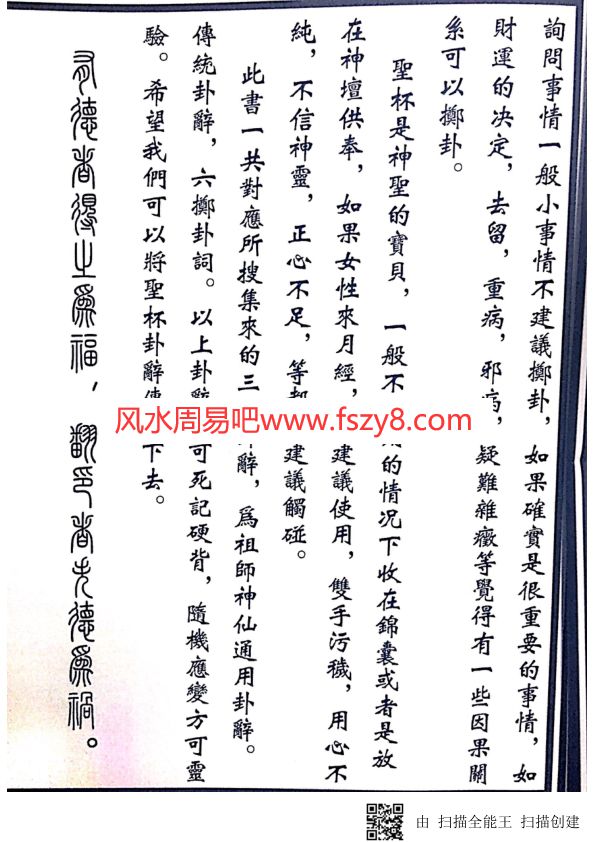 詢問事情一般小事情不建議擲卦，如果確實是很重要的事情，如
財運的决定，去留，重病，邪疾，疑難雜癥等覺得有一些因果關
系可以擲卦。
聖杯是神聖的寶貝，一般不的情况下收在錦囊或者是放
在神壇供奉，如果女性來月經，建議使用，雙手污穢，用心不
純，不信神靈，正心不足，等建議觸碰。
此書一共對應所搜集來的三辭，爲祖師神仙通用卦辭。
傳統卦辭，六擲卦詞。以上卦辭可死記硬背，隨機應變方可靈
驗。希望我們可以將聖杯卦辭傳下去。
有德者得之爲福，翻印者失德爲禍。
风水周易吧www.fszy8.com
由 扫描全能王 扫描创建